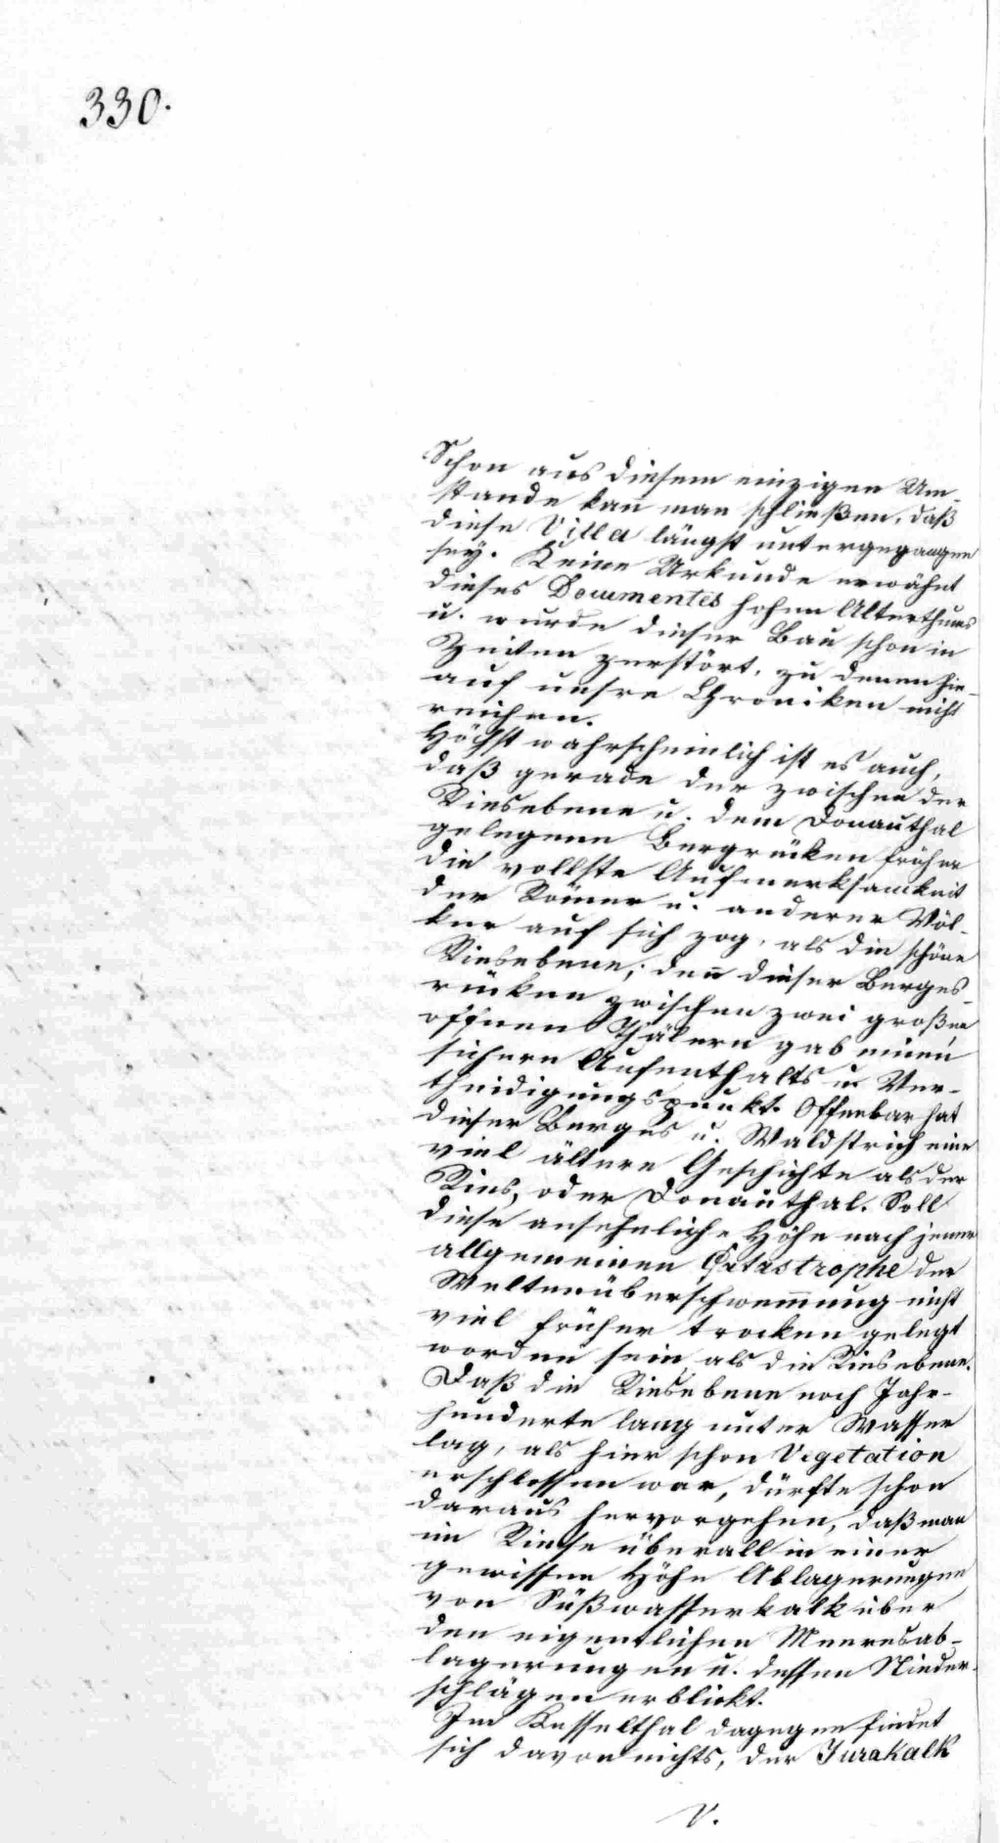 330.
Schon aus diesem einzigen Um-
stande kann man schließen, daß
diese Villa längst untergegangen
sey. Keine Urkunde erwähnt
dieses Documentes hohen Alterthums
u. wurde dieser Bau schon in
Zeiten zerstört, zu denen hin-
auf unsre Chroniken nicht
reichen.
Höchst wahrscheinlich ist es auch,
daß gerade der zwischen der
Riesebene u. dem Donauthal
gelegene Bergrücken früher
die vollste Aufmerksamkeit
der Römer u. anderer Völ-
ker auf sich zog, als die schöne
Riesebene; denn dieser Berges-
rücken zwischen zwei großen
offnen Thälern gab einen
sichern Aufenthalts u Ver-
theidigungspunkt. Offenbar hat
dieser Berges u. Waldstrich eine
viel ältere Geschichte als der
Ries, oder Donauthal. Soll
diese ansehnliche Höhe nach jener
allgemeinen Catastrophe der
Weltenüberschwemmung nicht
viel früher trocken gelegt
worden sein als die Riesebene.
Daß die Riesebene noch Jahr-
hunderte lang unter Wasser
lag, als hier schon Vegetation
erschlossen war, dürfte schon
daraus hervorgehen, daß man
im Riese überall in einer
gewissen Höhe Ablagerungen
von Süßwasserkalk über
den eigentlichen Meeresab-
lagerungen u. dessen Nieder-
schlägen erblickt.
Im Kesselthal dagegen findet
sich davon nichts, der Jurakalk
V.